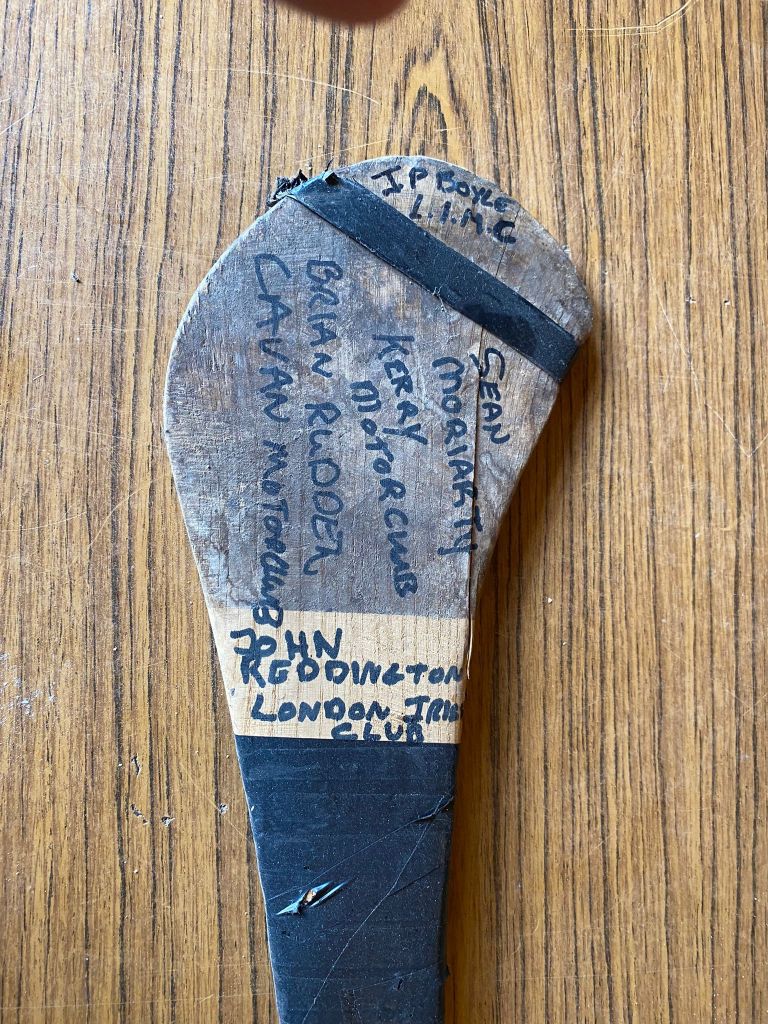 J P BOYLE
L.I.M.C
SEAN
MORIARTY
KERRY
MOTORCLUB
BRIAN RUDDEN
CAVAN MOTORCLUB
JOHN
REDDINGTON
LONDON IRISH
CLUB